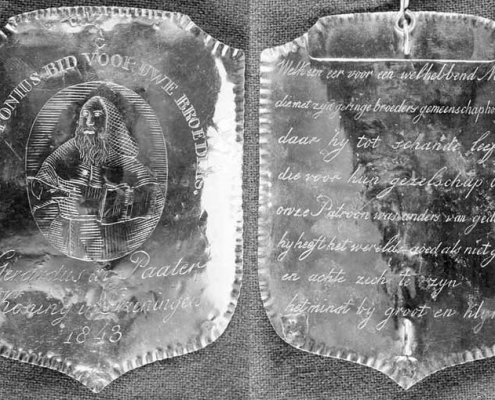 TONIUS BID VOOR UWE BROEDERS
Gerardus de Paater
Koning
1843
Welk een eer voor een welhebbend
die met zijn geringe broeders gemeenschap
daar hy tot schande leef
die voor hun gezelschap
onze Patroon was anders van
hy heeft het wereldt goed als niet
en achte zich te zyn
het minst by groot en klyn